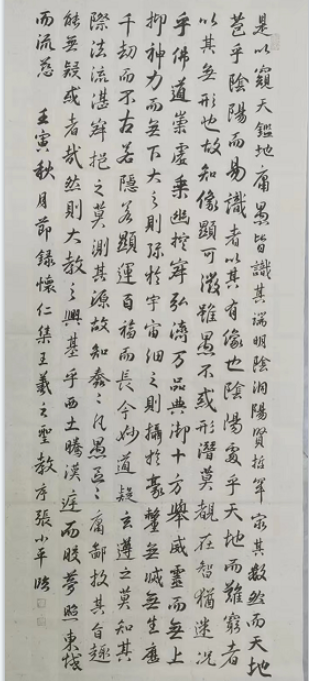 是以窺天鑑地庸愚皆識其端明陰洞陽賢哲罕窮其數然而天地
苞乎陰陽而易識者以其有像也陰陽處乎天地而難窮者
以其無形也故知像顯可徵雖愚不惑形潛莫覩在智猶迷況
乎佛道崇虛乘幽控寂弘濟万品典御十方舉威靈而無上
抑神力而無下大之則弥於宇宙細之則攝於豪釐無滅無生歷
千劫而不古若隱若顯運百福而長今妙道凝玄遵之莫知其
際法流湛寂挹之莫測其源故知蠢〻凡愚區〻庸鄙投其旨趣
能無疑或者哉然則大教之興基乎西土騰漢庭而皎夢照東域
而流慈 壬寅秋月節錄懷仁集王羲之聖教序張小平臨